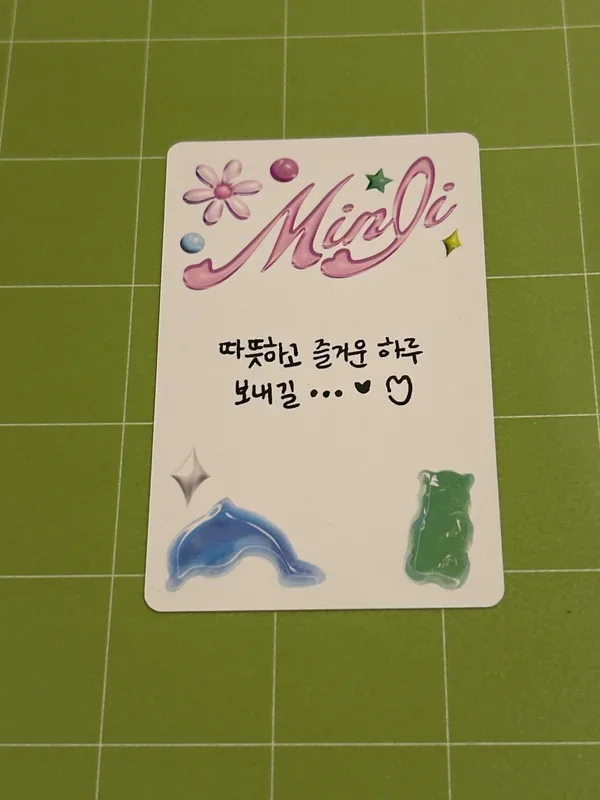 MinJi
따뜻하고 즐거운 하루
보내길 ... ♥